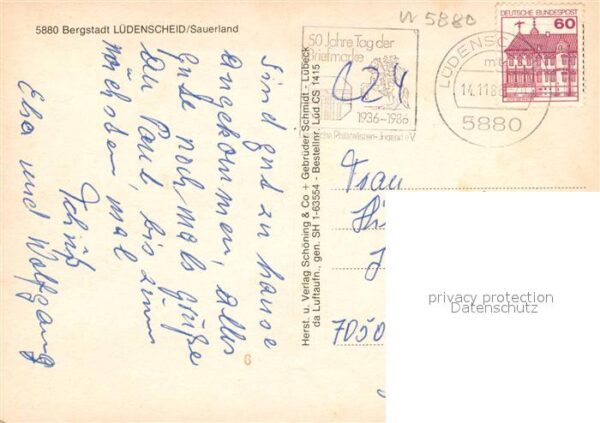 5880 Bergstadt LÜDENSCHEID/Sauerland
W 5880
Sind gut zu hause
angekommen, alles
Gute nochmals Grüße
an Paul bis zum
nächsten mal
Tschüß
Elsa und Wolfgang
Herst. u. Verlag Schöning & Co + Gebrüder Schmidt - Lübeck
da Luftaufn., gen. SH 1-63554 - Bestellnr. Lüd CS 1415
50 Jahre Tag der
Briefmarke
1936-1986
Philatelisten-Jugend e.V.
LÜDENSC
14.11.86
5880
DEUTSCHE BUNDESPOST
60
Frau
7050
privacy protection
Datenschutz